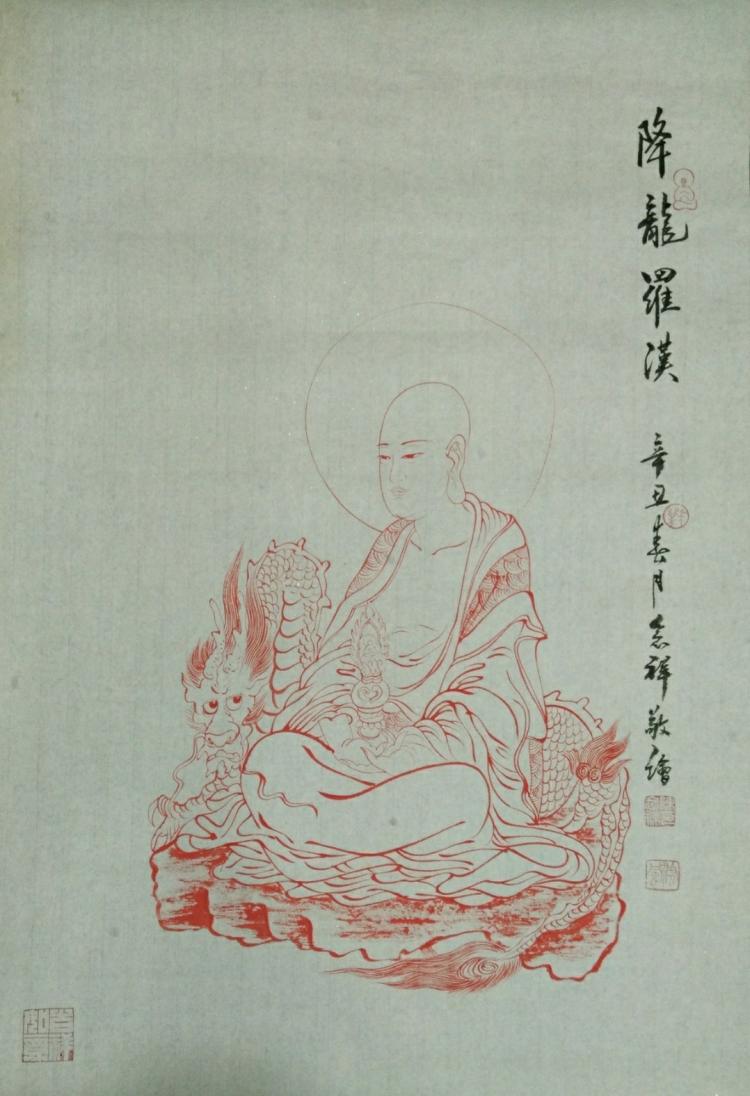 降龍羅漢
辛丑春月志祥敬繪